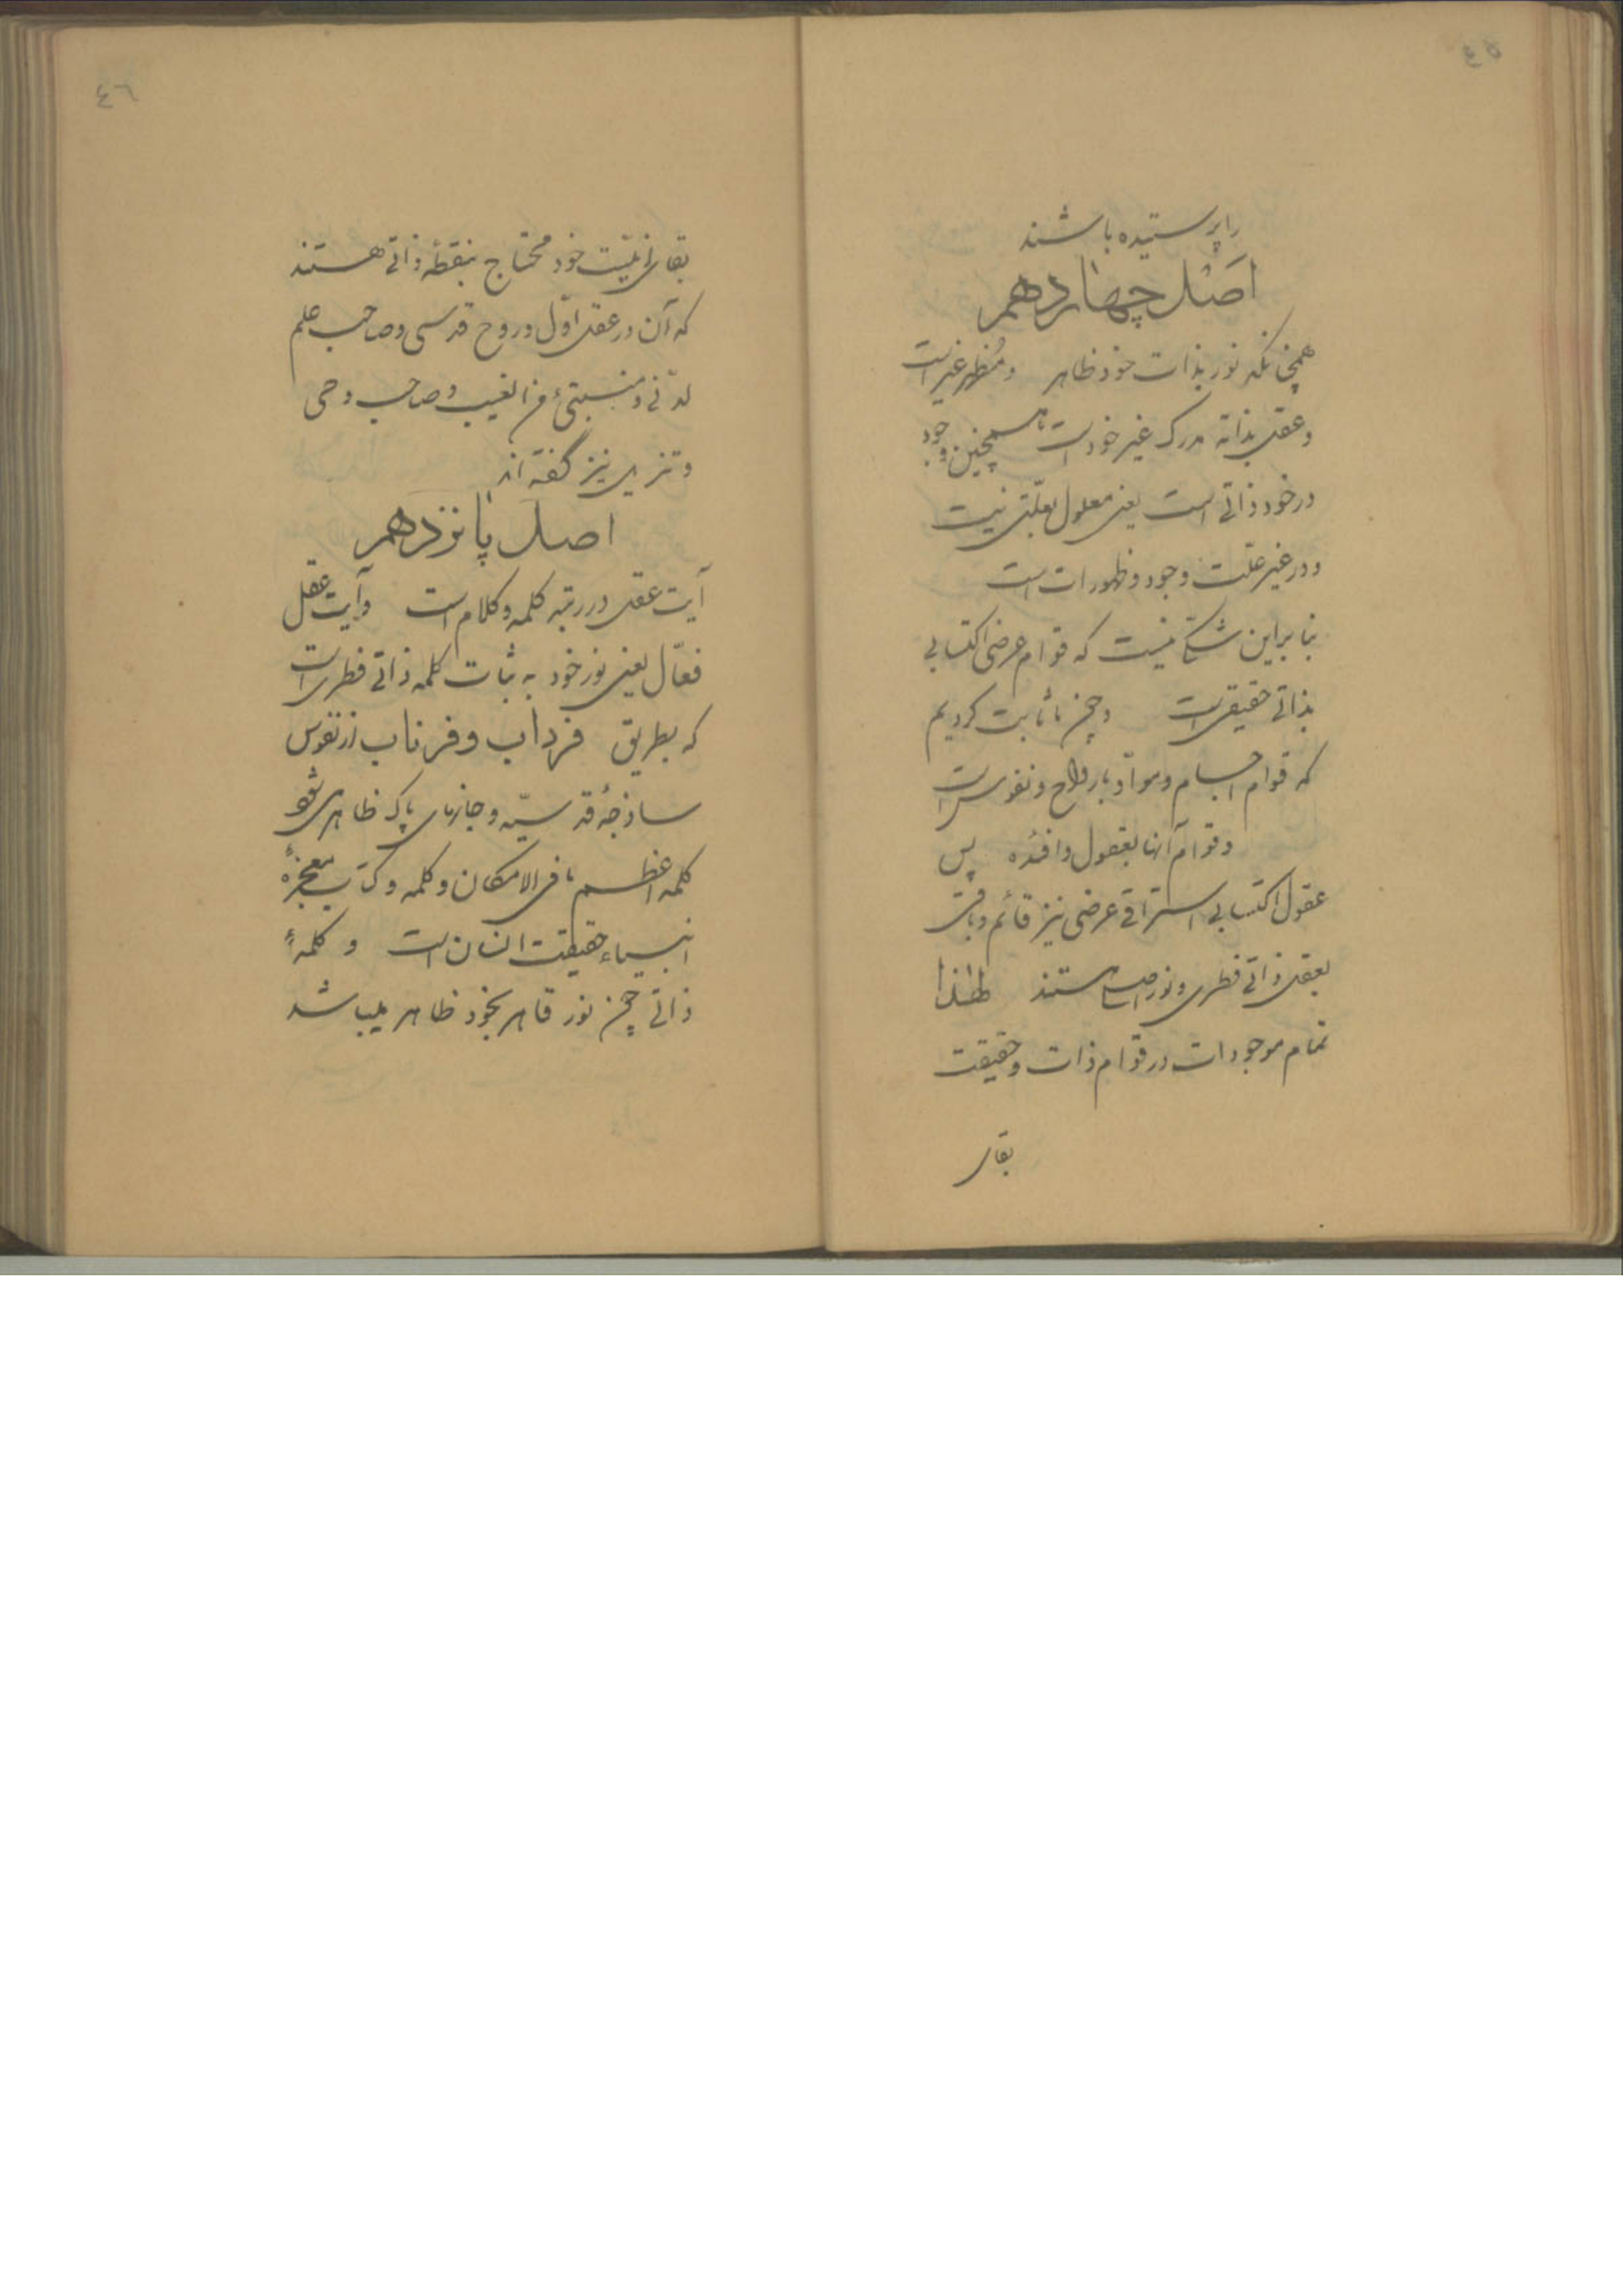 ٤٥
را پرستیده باشند
اصل چهاردهم
همچنانکه نور بذات خود ظاهر و مُظهر غیر است
و عقل بذاته مدرک غیر خود است همچنین وجود
در خود ذاتی است یعنی معلول بعلّتی نیست
و در غیر علت وجود و ظهورات است
بنابراین شکّی نیست که قوام عرضی اکتسابی
بذاتی حقیقی است و چون ما ثابت کردیم
که قوام اجسام و موادّ بارواح و نفوس است
و قوام آنها بعقول و افئده پس
عقول اکتسابی اشراقی عرضی نیز قائم و باقی
بعقل ذاتی فطری و نور اصلی هستند لهذا
تمام موجودات در قوام ذات و حقیقت
بقای
٤٦
بقای انیّت خود محتاج بنقطهٔ ذاتی هستند
که آن در عقل اوّل و روح قدسی و صاحب علم
لدنّی و من الغیب و صاحب وحی
و تنزیل نیز گفته اند
اصل پانزدهم
آیت عقل در رتبه کلمه و کلام است و آیت عقل
فعّال یعنی نور خود به ثبات کلمه ذاتی فطری است
که بطریق فرداب و فرتاب از نفوس
ساذجهٔ قدسیّه و جانهای پاک ظاهر می شود
کلمه اعظم ما فی الامکان و کلمه و کتاب معجزهٔ
انبیاء حقیقت انسان است و کلمهٔ
ذاتی چون نور قاهر بخود ظاهر میباشد